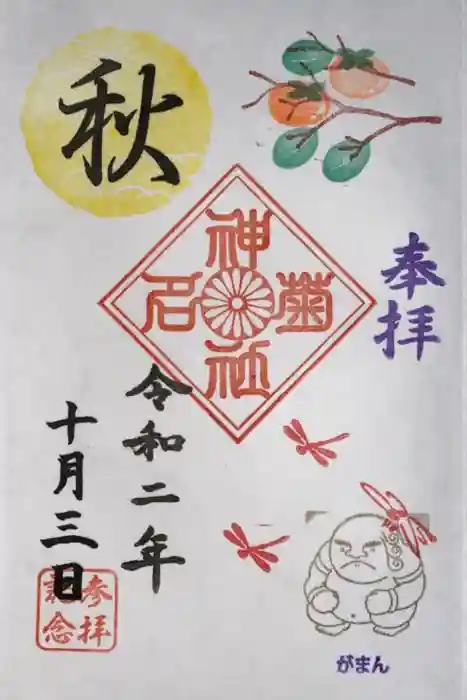 奉拝
秋
菊名
神社
令和二年
十月三日
参拝
記念
がまん